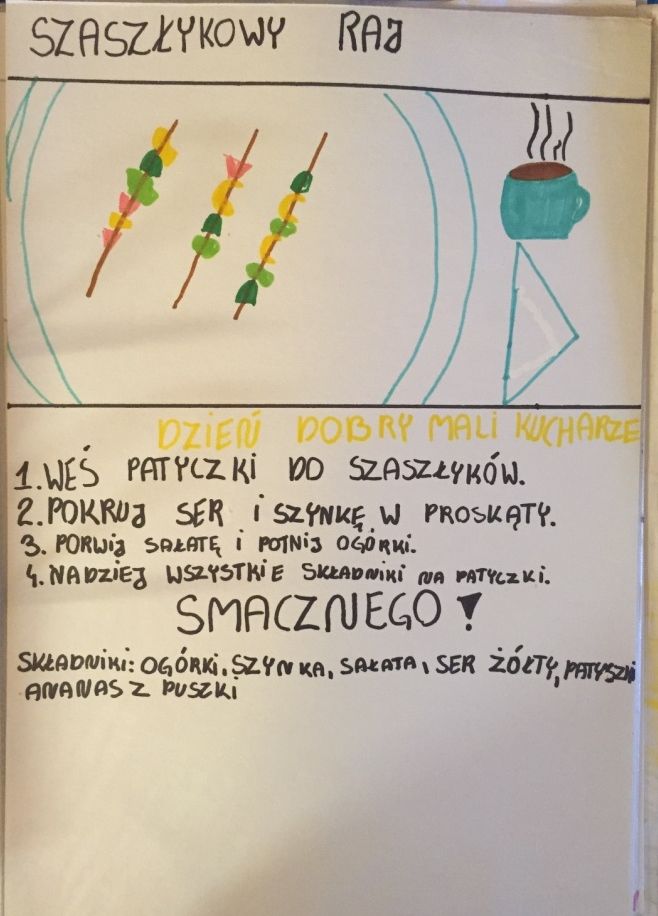 SZASZŁYKOWY RAJ
DZIEŃ DOBRY MALI KUCHARZE
1. WEŚ PATYCZKI DO SZASZŁYKÓW.
2. POKRUJ SER I SZYNKĘ W PROSKĄTY.
3. PORWIJ SAŁATĘ I POTNIJ OGÓRKI.
4. NADZIEJ WSZYSTKIE SKŁADNIKI NA PATYCZKI.
SMACZNEGO!
SKŁADNIKI: OGÓRKI, SZYNKA, SAŁATA, SER ŻÓŁTY, PATYSZKI
ANANAS Z PUSZKI